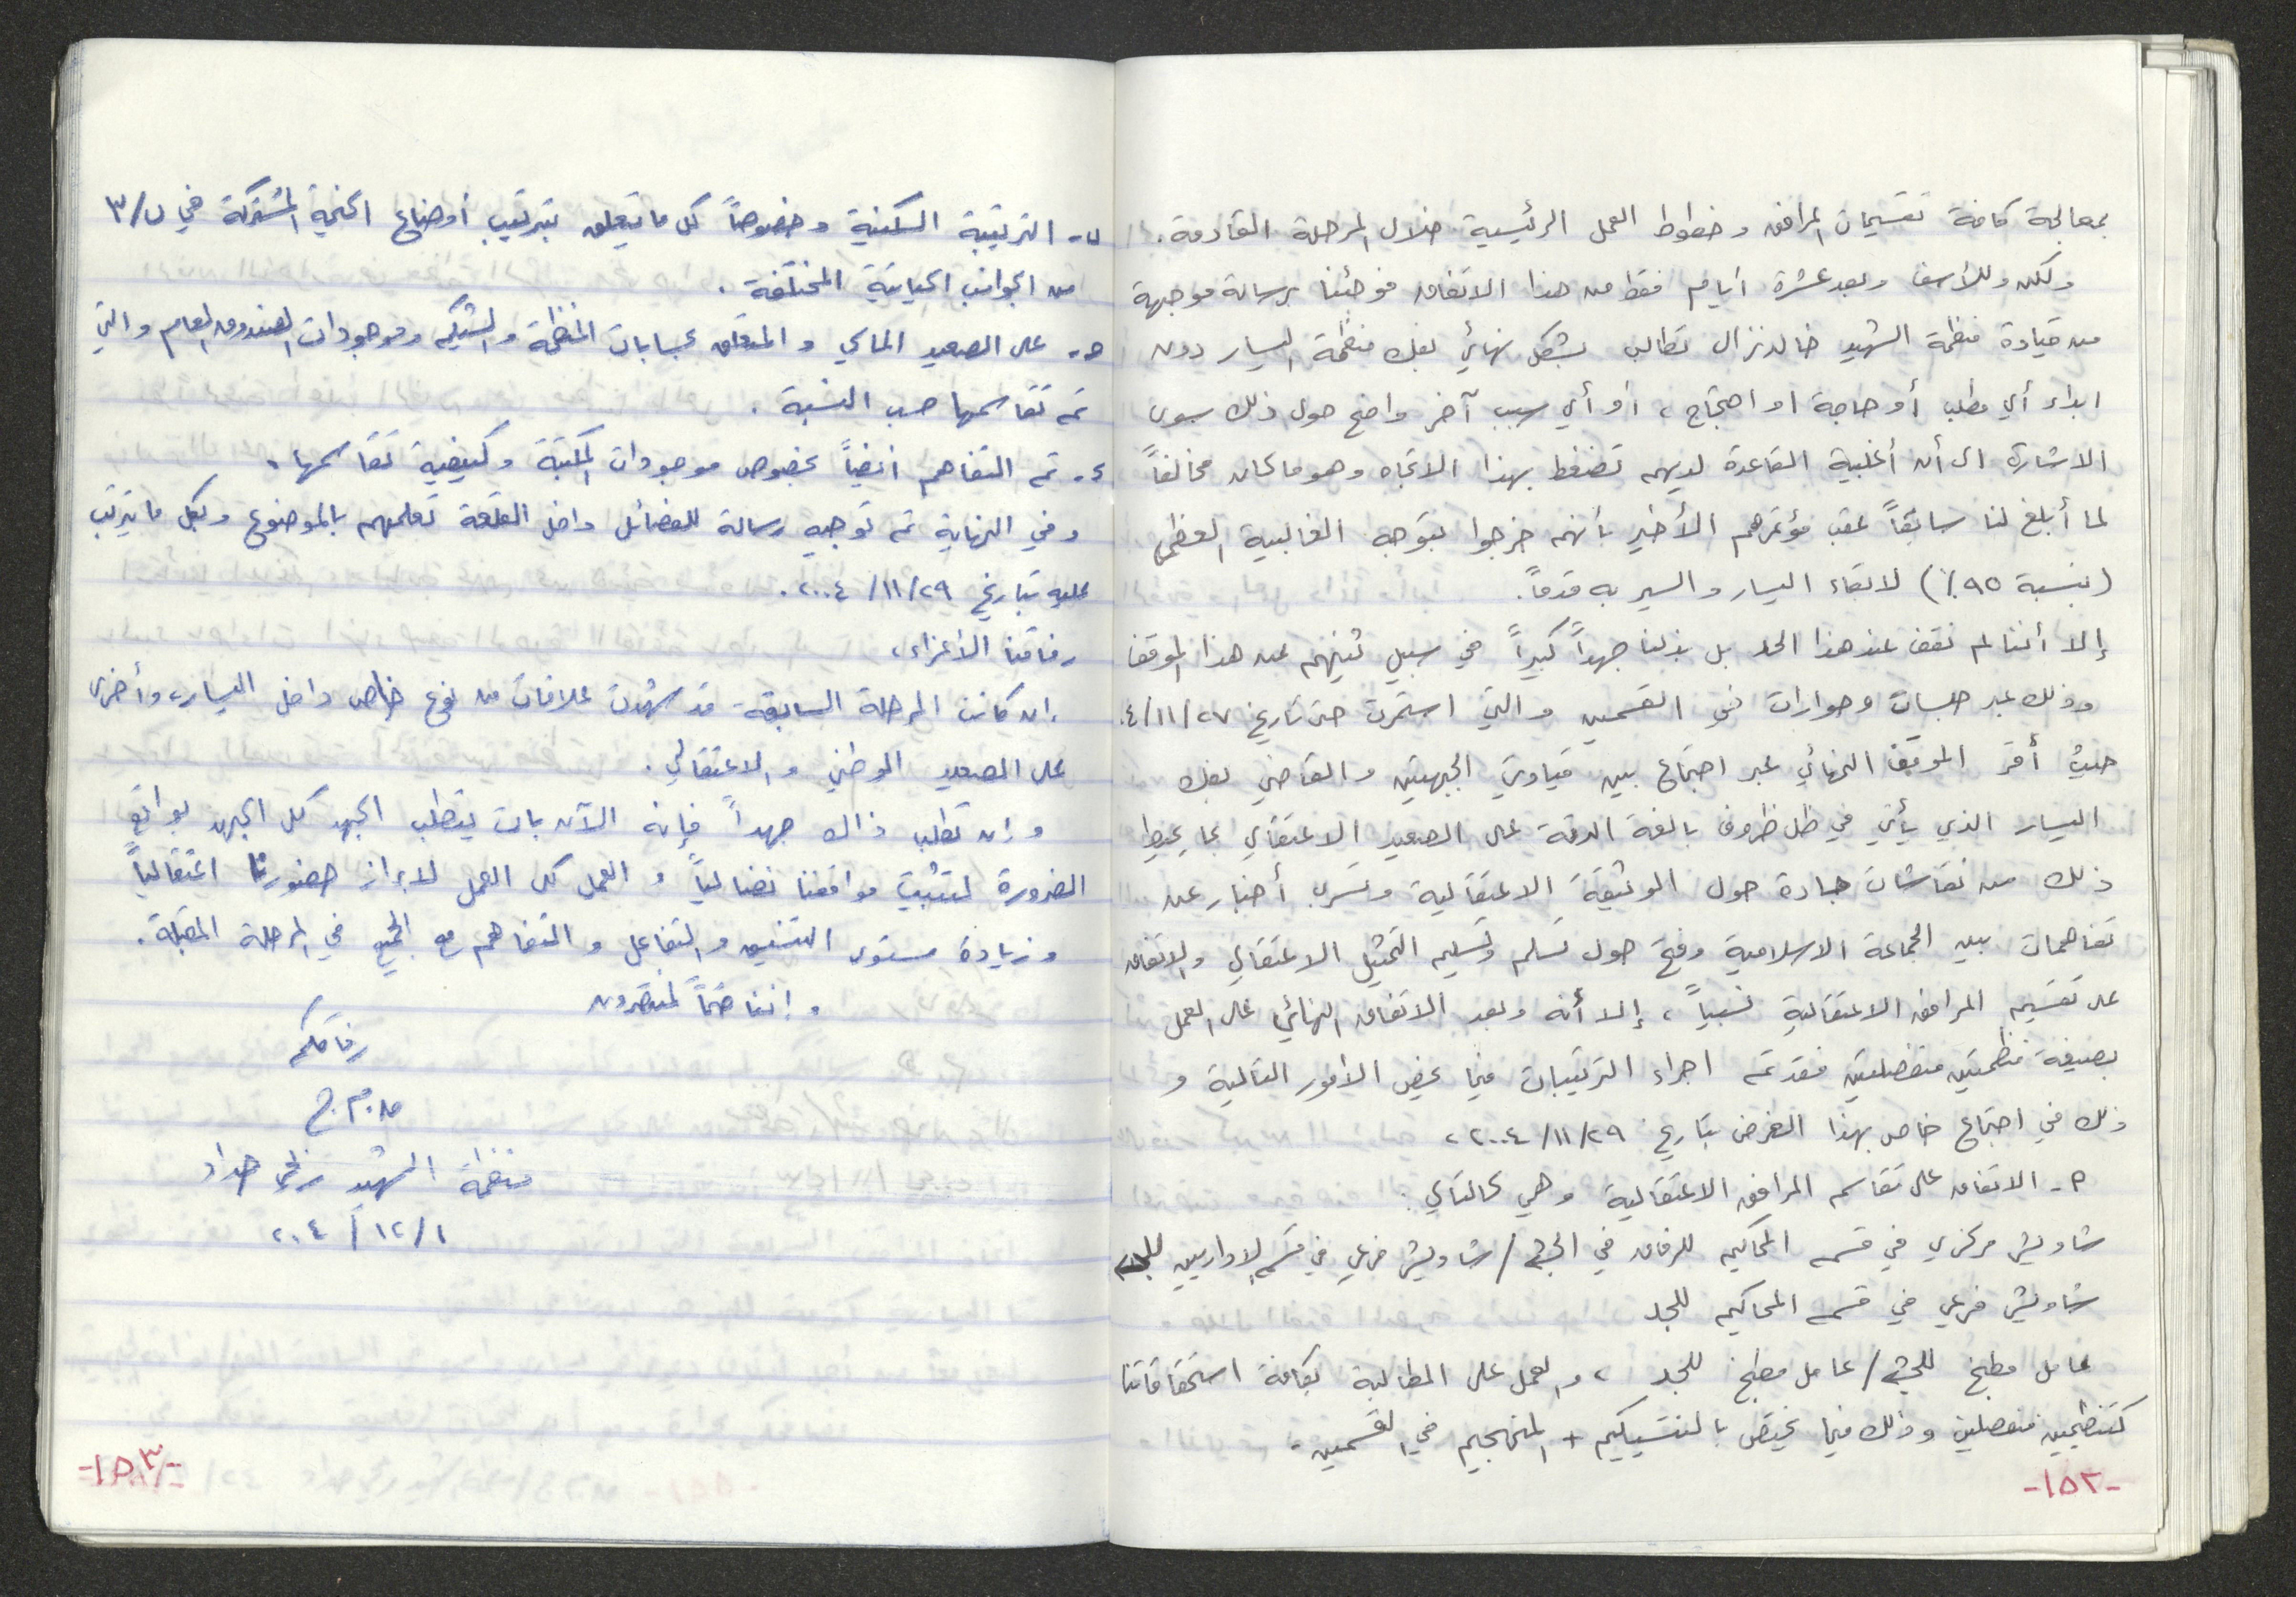 بمعالجة كافة تقسيمات المرافق وخطوط العمل الرئيسية خلال المرحلة القادمة.
ولكن وللأسف وبعد عشرة أيام فقط من هذا الاتفاق فوجئنا برسالة موجهة
من قيادة منظمة الشهيد خالد نزال تطالب بشكل نهائي بفك منظمة اليسار دون
ابداء أي مطلب أو حاجة او احتجاج، أو أي سبب آخر واضح حول ذلك سوى
الاشارة الى أن أغلبية القاعدة لديهم تضغط بهذا الاتجاه وهو ما كان مخالفاً
لما أبلغ لنا سابقاً عقب مؤتمرهم الأخير بأنهم خرجوا بتوجه الغالبية العظمى
(بنسبة ٩٥٪) لابقاء اليسار والسير به قدماً.
إلا أننا لم نقف عند هذا الحد بل بذلنا جهداً كبيراً في سبيل ثنيهم عن هذا الموقف
وذلك عبر جلسات وحوارات في القسمين والتي استمرت حتى تاريخ ٢٧/١١/٠٤
حيث أقر الموقف النهائي عبر اجتماع بين قيادتي الجبهتين والقاضي بفك
اليسار الذي يأتي في ظل ظروف بالغة الدقة على الصعيد الاعتقالي بما يحيط
ذلك من نقاشات جادة حول الوثيقة الاعتقالية وتسرب أخبار عن
تفاهمات بين الجماعة الاسلامية وفتح حول تسلم وتسليم التمثيل الاعتقالي والاتفاق
على تقسيم المرافق الاعتقالية نسبياً، إلا أنه وبعد الاتفاق النهائي على العمل
بصيغة منظمتين منفصلتين فقد تم اجراء الترتيبات فيما يخص الأمور التالية و
ذلك في اجتماع خاص بهذا الغرض بتاريخ ٢٩/١١/٢٠٠٤،
٥- الاتفاق على تقاسم المرافق الاعتقالية وهي كالتالي:
شاويش مركزي في قسم المحاكيم للرفاق في الجش/ شاويش فرعي في قسم الاداريين
شاويش فرعي في قسم المحاكيم للجد
عامل مطبخ للجش/ عامل مطبخ للجد، والعمل على المطالبة بكافة استحقاقاتنا
كتنظيمين منفصلين وذلك فيما يختص بالنتسيكيم + المنهجيم في القسمين.
-١٥٢-
ب- الترتيبة السكنية وخصوصاً كل ما يتعلق بترتيب أوضاع الخيمة المشتركة في ب/٣
من الجوانب الحياتية المختلفة.
ج- على الصعيد المالي والمتعلق بحسابات المنظمة والشيكم وموجودات الصندوق العام والتي
تم تقاسمها حسب النسبة.
د- تم التفاهم أيضاً بخصوص موجودات المكتبة وكيفية تقاسمها.
وفي النهاية تم توجيه رسالة للفصائل داخل القلعة تعلمهم بالموضوع وبكل ما يترتب
عليه بتاريخ ٢٩/١١/٢٠٠٤.
رفاقنا الأعزاء،
ان كانت المرحلة السابقة قد شهدت علاقات من نوع خاص داخل اليسار، وأخرى
على الصعيد الوطني والاعتقالي.
وان تطلب ذاك جهداً فإنه الآن بات يتطلب الجهد كل الجهد بواقع
الضرورة لتثبيت مواقفنا نضالياً والعمل كل العمل لابراز حضورنا اعتقالياً
وزيادة مستوى التنسيق والتفاعل والتفاهم مع الجميع في المرحلة المقبلة.
وإننا حتماً لمنتصرون
رفاقكم
منظمة الشهيد حداد
١/١٢/٢٠٠٤
-١٥٣-